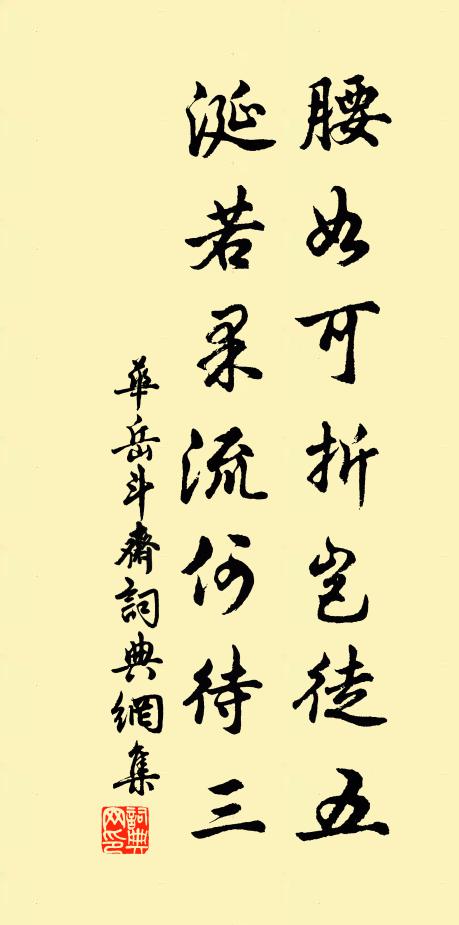 腰如可折岂徒五
涎若果流何待三
華岳斗齋詞典網集
詞典网印